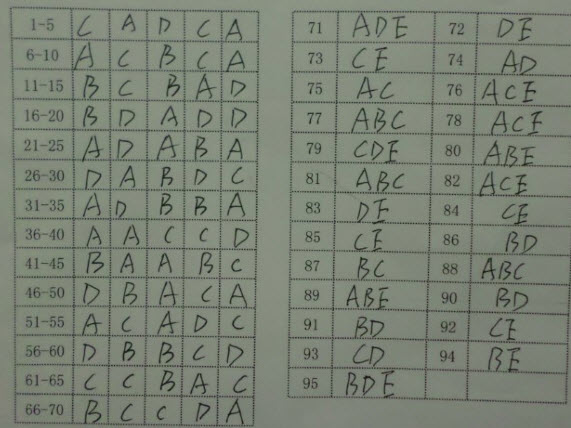 1-5 C A D C A
6-10 A C B C A
11-15 B C B A D
16-20 B D A D D
21-25 A D A B A
26-30 D A B D C
31-35 A D B B A
36-40 A A C C D
41-45 B A A B C
46-50 D B A C A
51-55 A C A D C
56-60 D B B C D
61-65 C C B A C
66-70 B C C D A
71 ADE 72 DE
73 CE 74 AD
75 AC 76 ACE
77 ABC 78 ACE
79 CDE 80 ABE
81 ABC 82 ACE
83 DE 84 CE
85 CE 86 BD
87 BC 88 ABC
89 ABE 90 BD
91 BD 92 CE
93 CD 94 BE
95 BDE